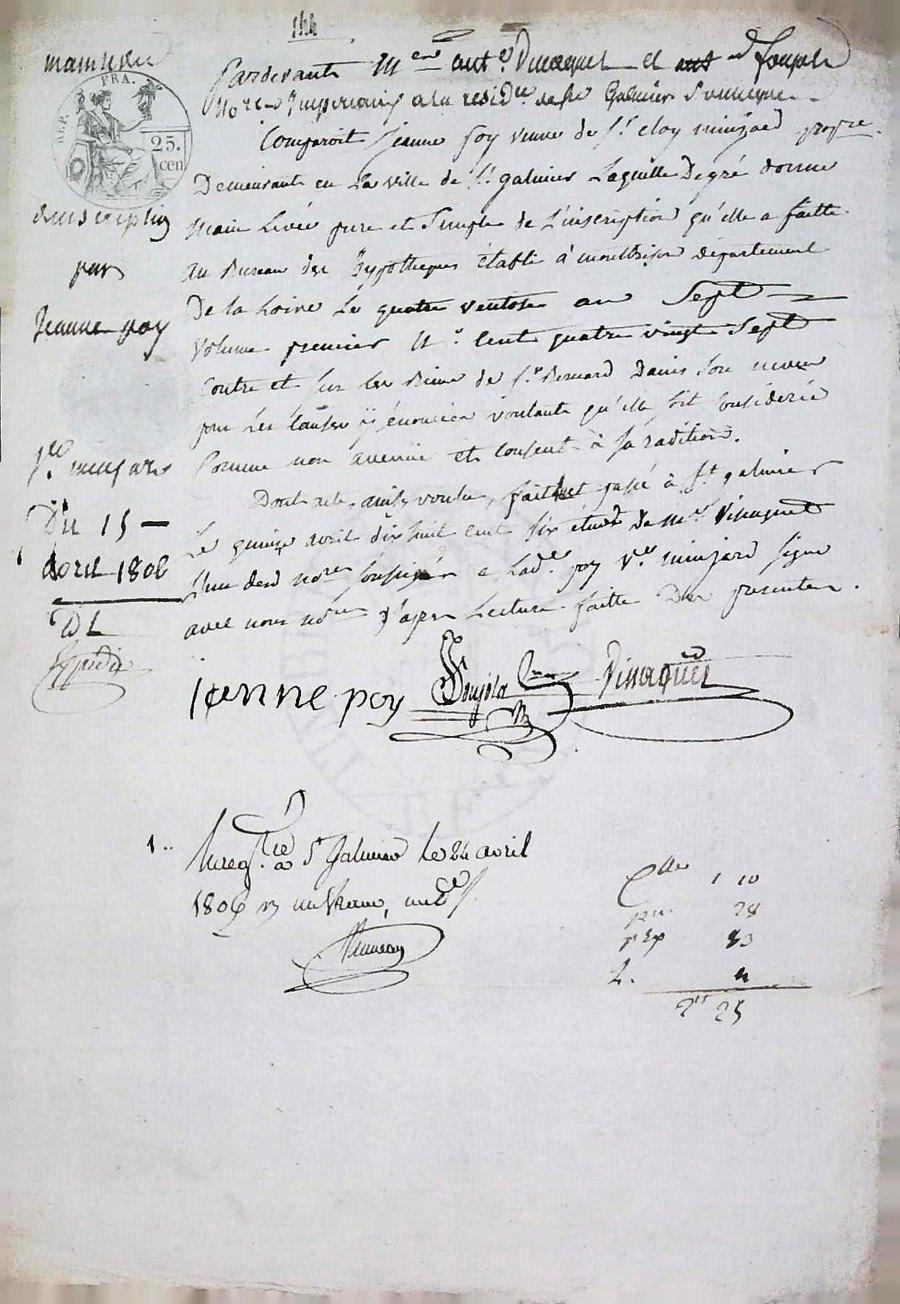 144
main levée
REP. FRA.
25.
cen
d'inscription
par
Jeanne poy
Ve. minjard
Du 15
avril 1806
DL
Expédié
Pardevant Mes. ant. Vinaguet et ant d Soujols
No.res Impériaux a la résid.ce de St Galmier
Comparoit Jeanne poy veuve de Sr. eloy minjard propre.
Demeurante en la ville de St. galmier Laquelle De gré donne
main Levée pure et Simple de L'inscription qu'elle a faitte
au Bureau des hypotheques établi à montbrison département
De la Loire Le quatre ventose an Sept
Volume premier N.o Cent quatre vingt Sept
Contre et sur les Biens de Sr. Bernard son neveu
pour les causes y énoncées voulante qu'elle soit considérée
comme non avenue et consent à sa radition.
Dont acte ainsi voulu, fait et passé à St. galmier
Le quinze avril dix huit cent six étude De me. Vinaguet
L'un desd. no.res soussignés a Lad.e poy Ve. minjard signé
avec nous no.res d'après Lecture faitte Des présentes.
jeanne poy Soujols Vinaguet
1..
Enreg.tré a St Galmier le 24 avril
1806
1 10
28
83
4
2 25